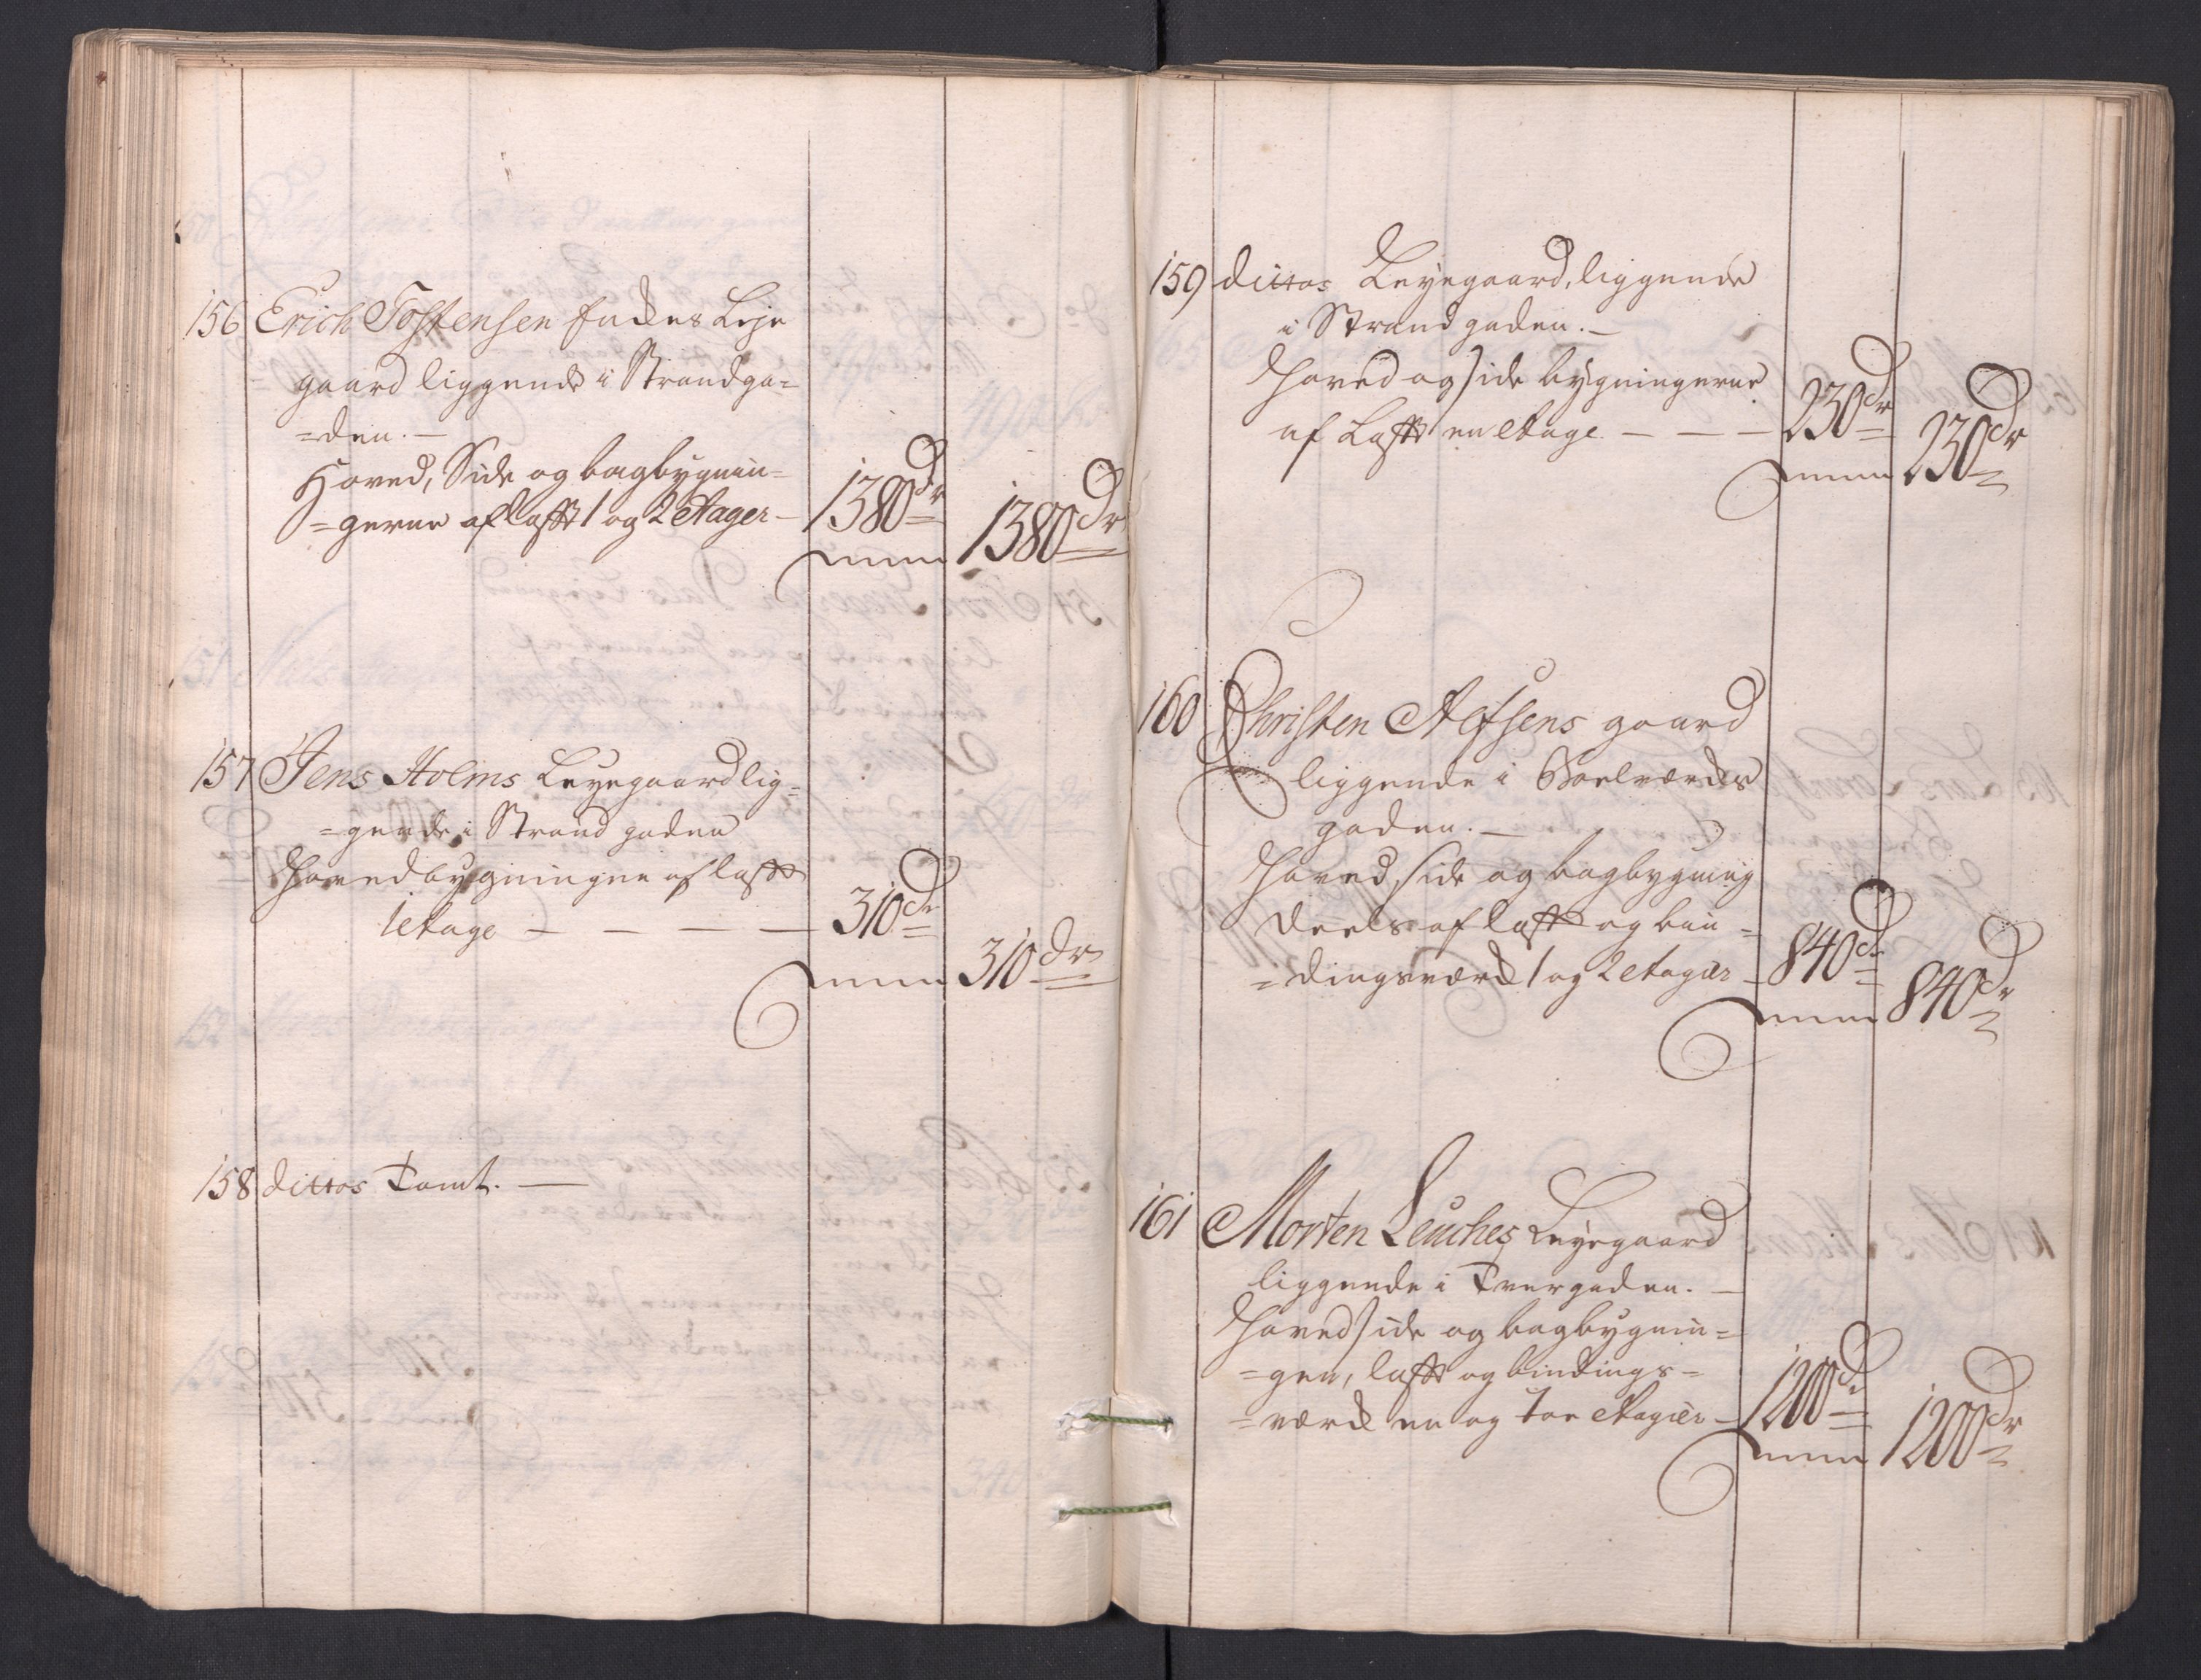 156 Erich Tostensen Leje
gaard liggende i Strandga=
=den. —
Hoved, Side og bagbygnin=
=gerne af laft 1 og 2 Etager — 1380 dr
1380 dr
157 Jens Holms Leyegaard lig=
=gende i Strand gaden
Hovedbygningen af laft
1 etage — — — — 310 dr
310 dr
158 dittos Tomt. —
159 dittos Leyegaard, liggende
i Strand gaden. —
Hoved og side bygningerne
af Laft en etage. — — — 230 dr
230 dr
160 Christen gaard
liggende i Boelværchs
gaden. —
Hoved, side og bagbygning
deels af laft og bin=
=dingsværch 1 og 2 etager — 840 dr
840 dr
161 Morten Leuches Leyegaard
liggende i Tvergaden. —
Hoved side og bagbygnin=
=gen, laft og bindings=
=værch en og toe etager — 1200 dr
1200 dr